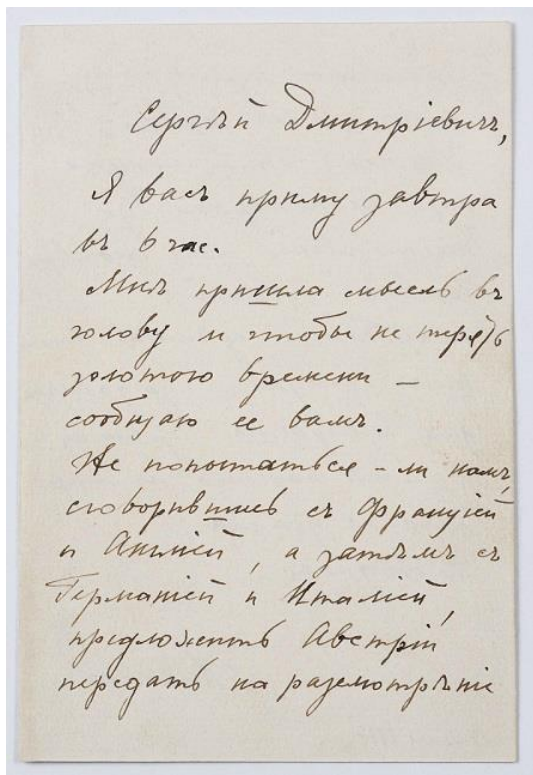 Сергѣй Дмитріевичъ,
Я васъ приму завтра
въ 6 час.
Мнѣ пришла мысль въ
голову и чтобы не терять
золотого времени –
сообщаю ее вамъ.
Не попытаться-ли намъ,
сговорившись съ Франціей
и Англіей, а затѣмъ съ
Германіей и Италіей,
предложить Австріи
передать на разсмотрѣніе